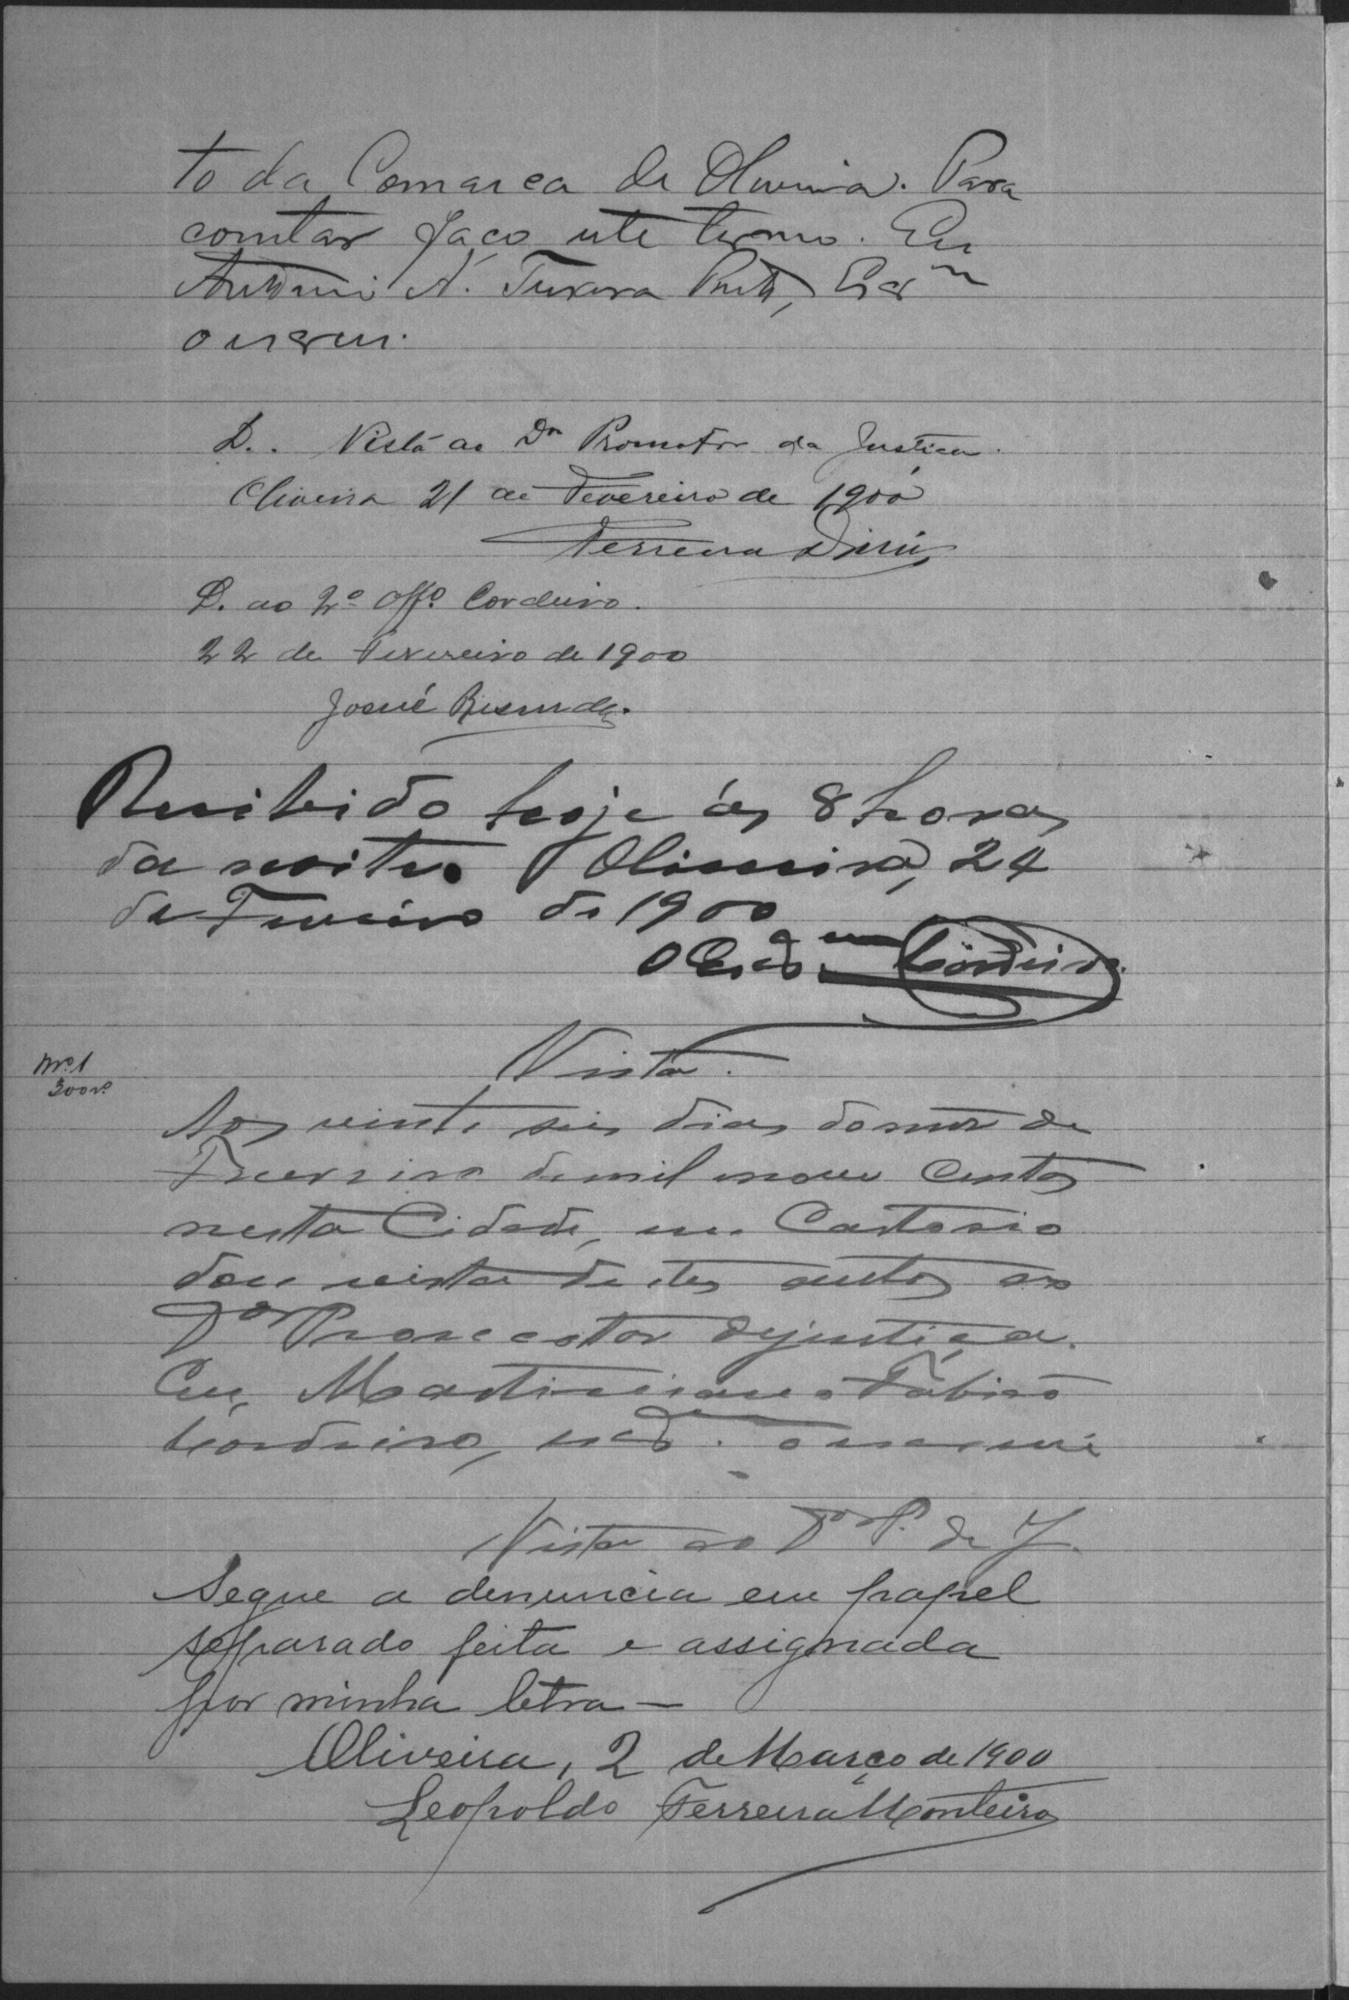 to da Comarca de Oliveira. Para
constar faço este termo. Eu
Antonio A. Teixeira Escr^m
o escrevi.
D.. Vista ao D^r Promotor da Justiça.
Oliveira 21 de Fevereiro de 1900
Ferreira Diniz
D. ao 2º Offº Cordeiro.
22 de Fevereiro de 1900
Josué Resende.
Recibido hoje ás 8 horas
da noite. Oliveira, 24
de Fevereiro de 1900
O Escr^am Cordeiro.
Nº 1
300rs
Vista.
Aos vinte seis dias do mez de
Fevereiro de mil nove centos
nesta Cidade, em Cartorio
dou vista destes autos ao
D^or Promotor dejustiça.
Eu, Martiniano Fabião
Cordeiro, escr^am. o escrevi
Vista ao D^or P. de J.
Segue a denuncia em papel
separado feita e assignada
por minha letra —
Oliveira, 2 de Março de 1900
Leopoldo Ferreira Monteiro